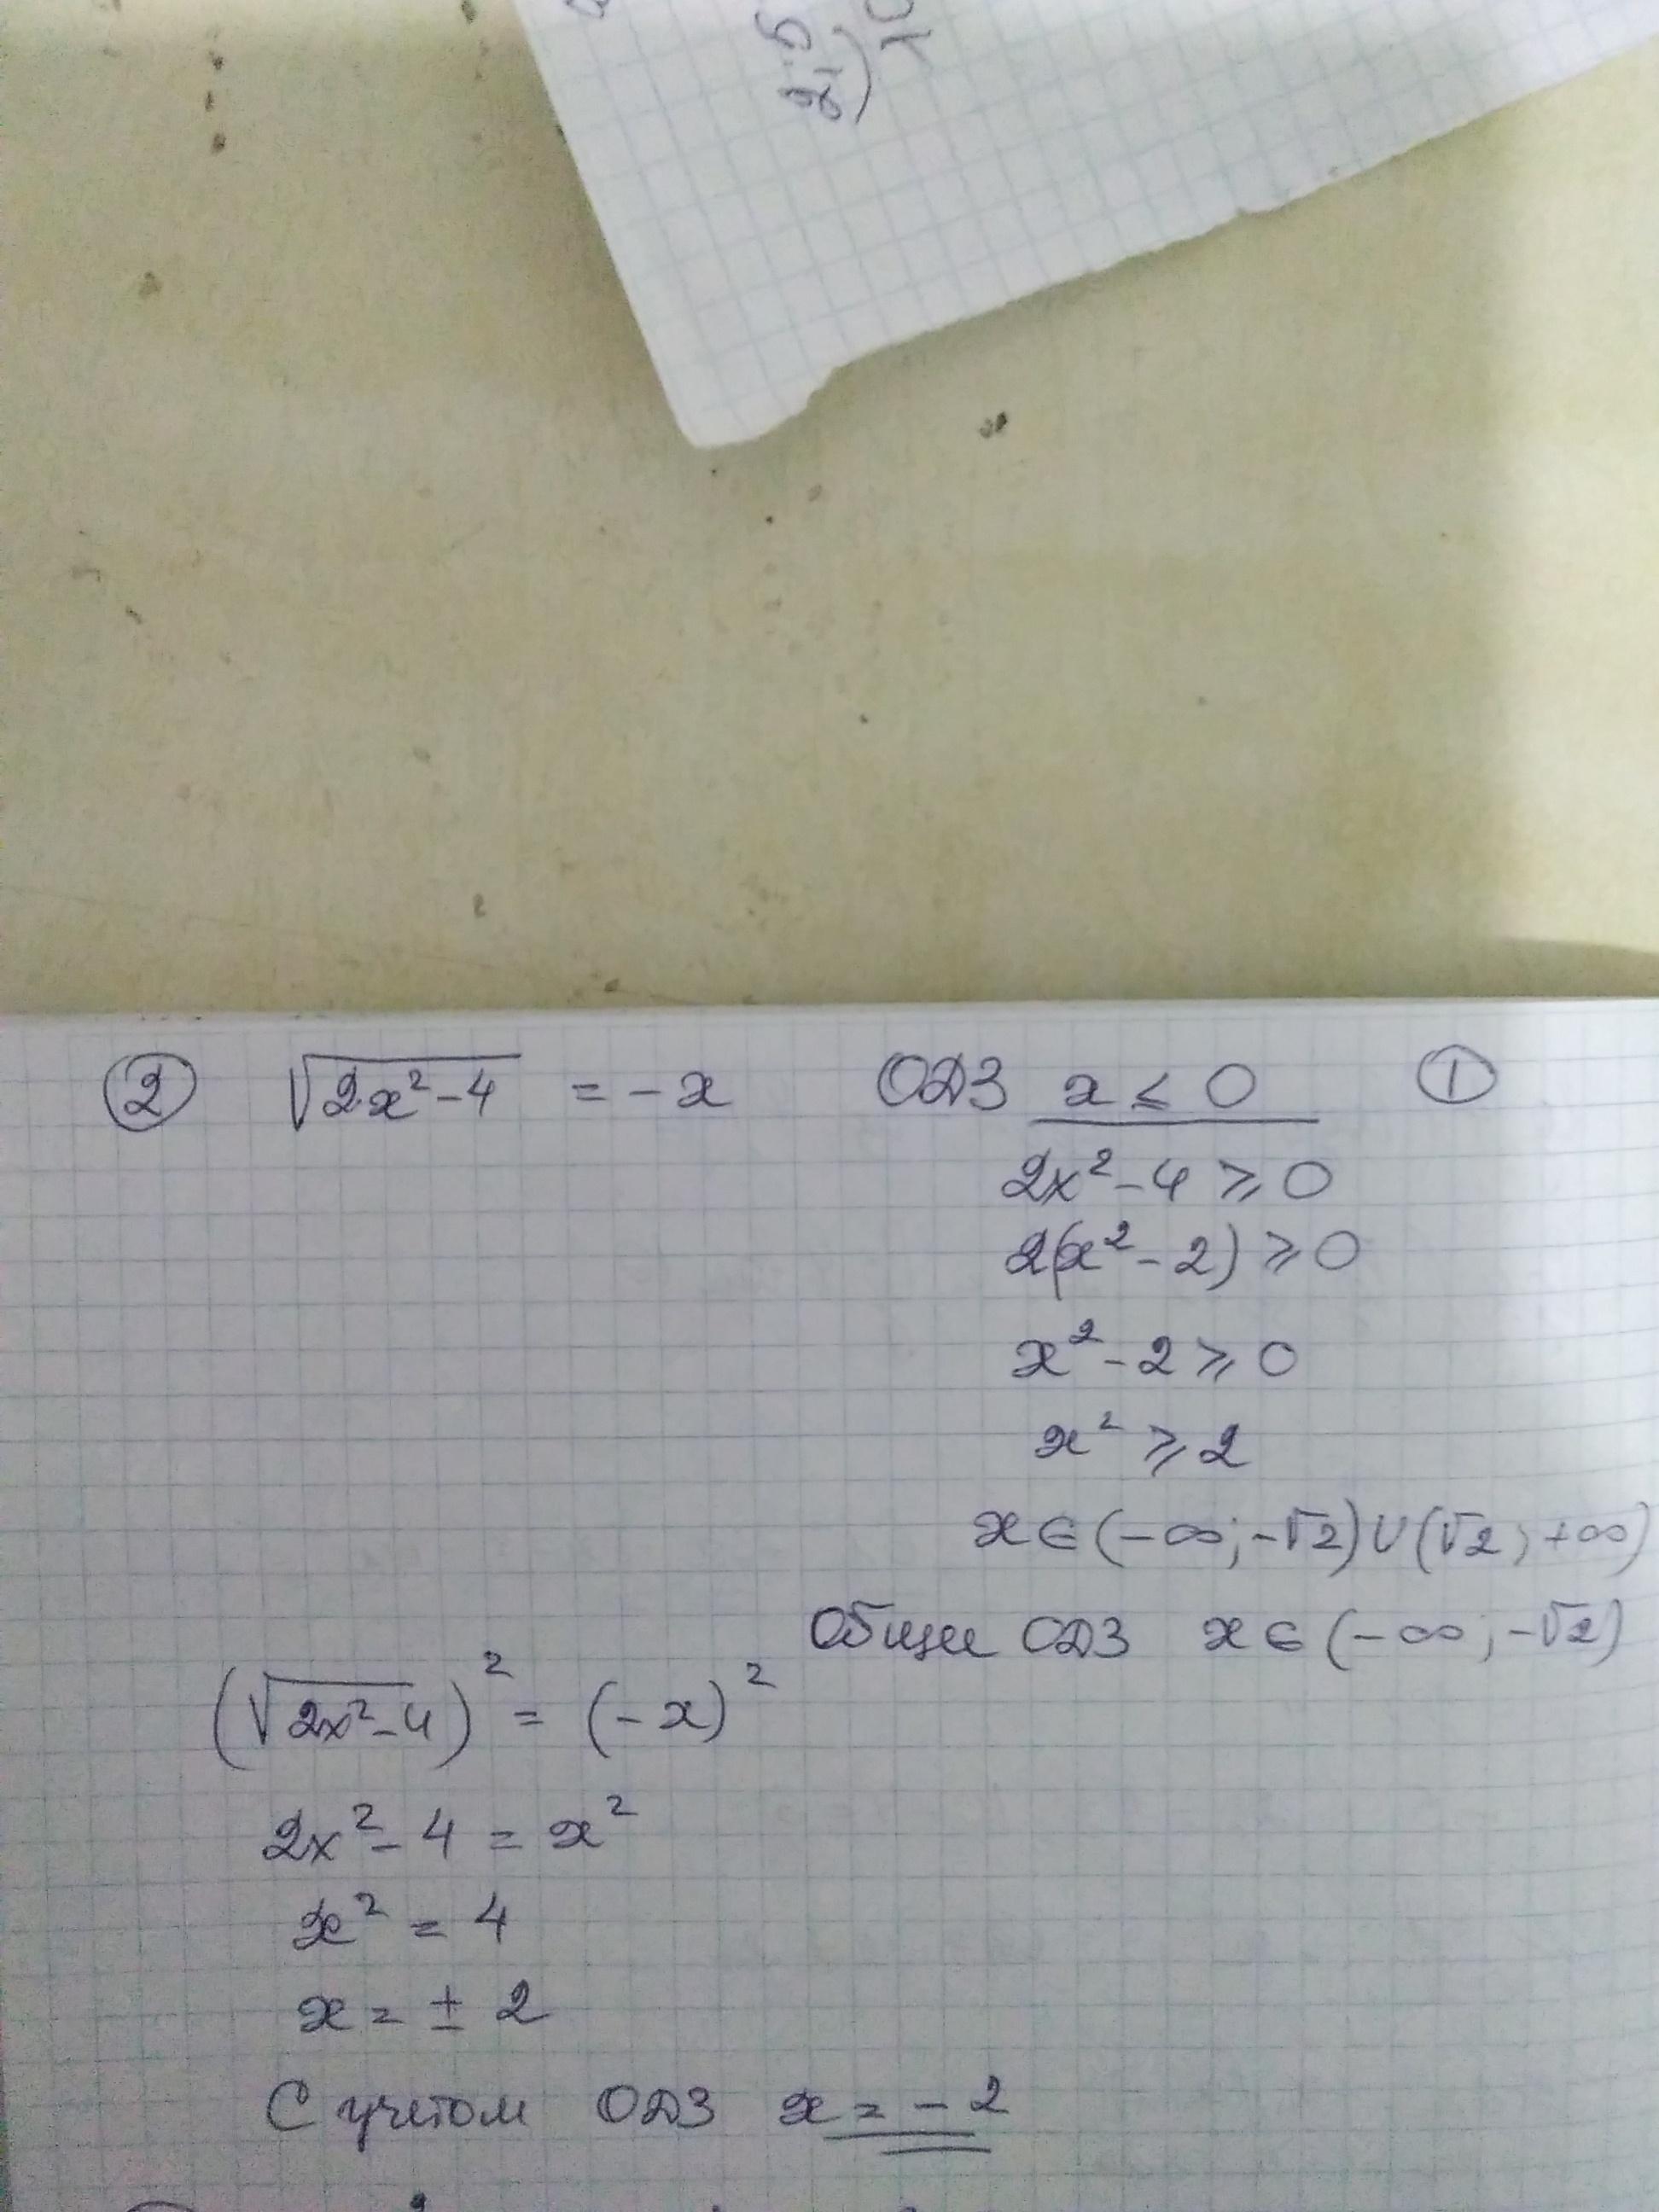 ② √2x²-4 = -x ОДЗ x ≤ 0 ①
2x²-4 ⩾ 0
2(x²-2) ⩾ 0
x²-2 ⩾ 0
x² ⩾ 2
x∈(-∞;-√2)∪(√2;+∞)
Общее ОДЗ x∈(-∞;-√2)
(√2x²-4)² = (-x)²
2x²-4 = x²
x² = 4
x = ± 2
С учетом ОДЗ x = -2